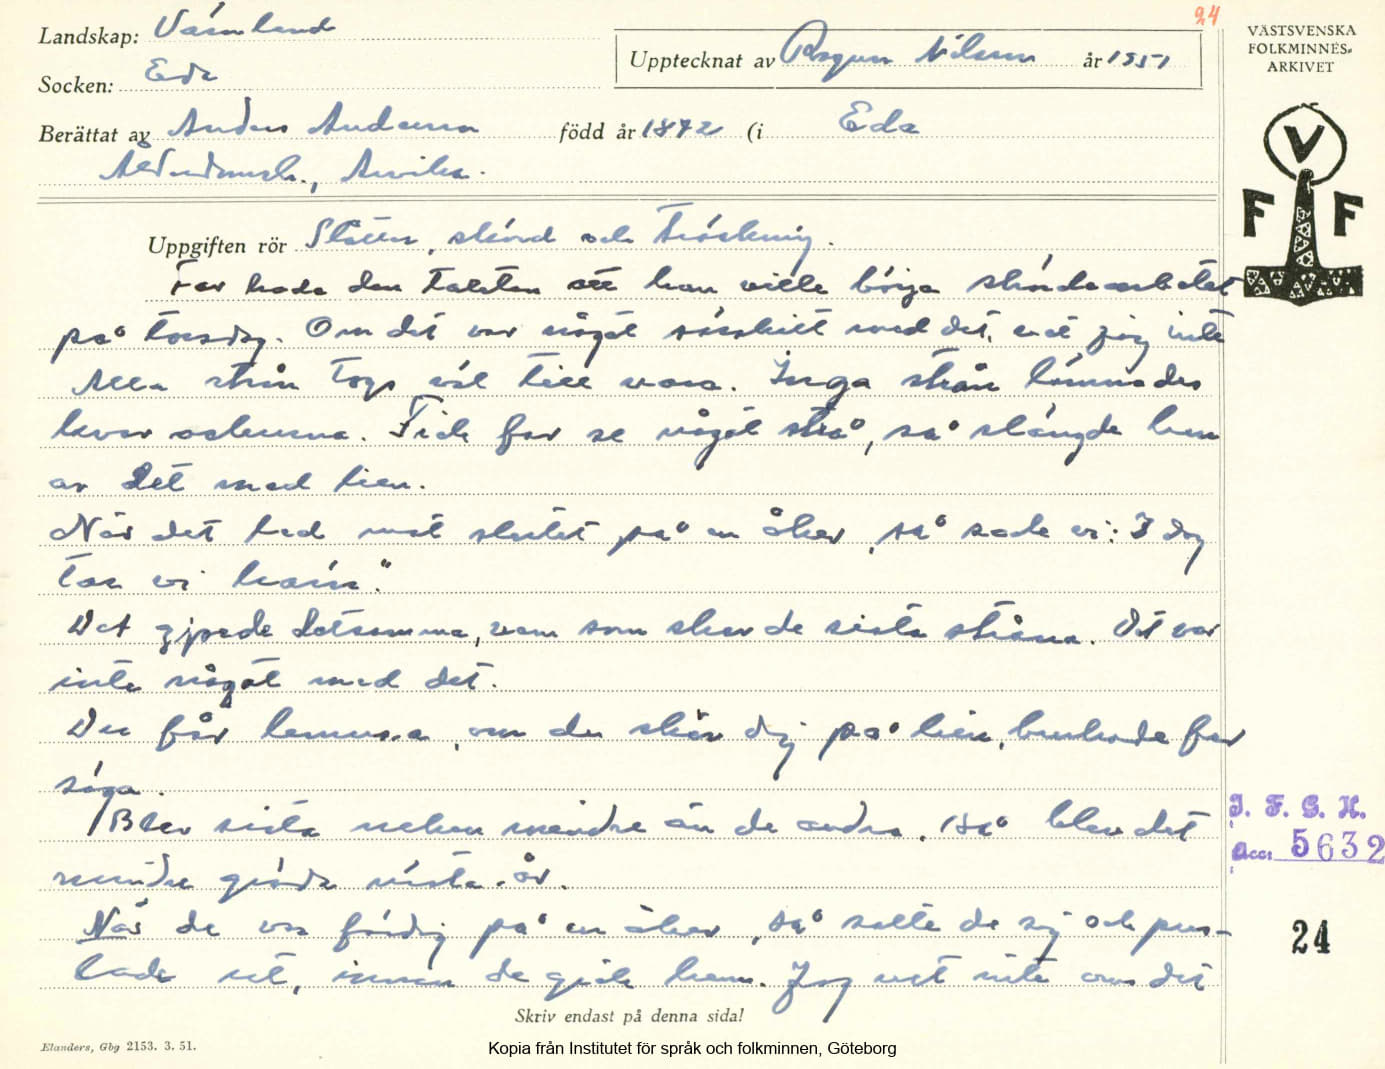 24
Landskap: Värmland
Socken: Eda
Upptecknat av Ragnar Nilsson år 1951
Berättat av Anders Andersson född år 1872 (i Eda
Ålderdomsh., Arvika.
VÄSTSVENSKA
FOLKMINNES-
ARKIVET
V
F F
Uppgiften rör Slåtter, skörd och tröskning.
Far hade den takten att han ville börja skördearbetet
på torsdag. Om det var något särskilt med det, vet jag inte
Alla strån togs väl till vara. Inga strån lämnades
kvar Fick far se något strå, så slängde han
av det med lien.
När det led mot slutet på en åker, så sade vi: I dag
tar vi haren."
Det gjorde detsamma, vem som skar de sista stråna. Det var
inte något med det.
Du får lemma, om du skär dig på lien, brukade far
säga.
Blev sista neken mindre än de andra, så blev det
mindre gröda nästa år.
När de var färdig på en åker, så satte de sig och pus-
tade ut, innan de gick hem. Jag vet inte om det
I. F. G. H.
Acc: 5632
24
Skriv endast på denna sida!
Elanders, Gbg 2153. 3. 51.
Kopia från Institutet för språk och folkminnen, Göteborg